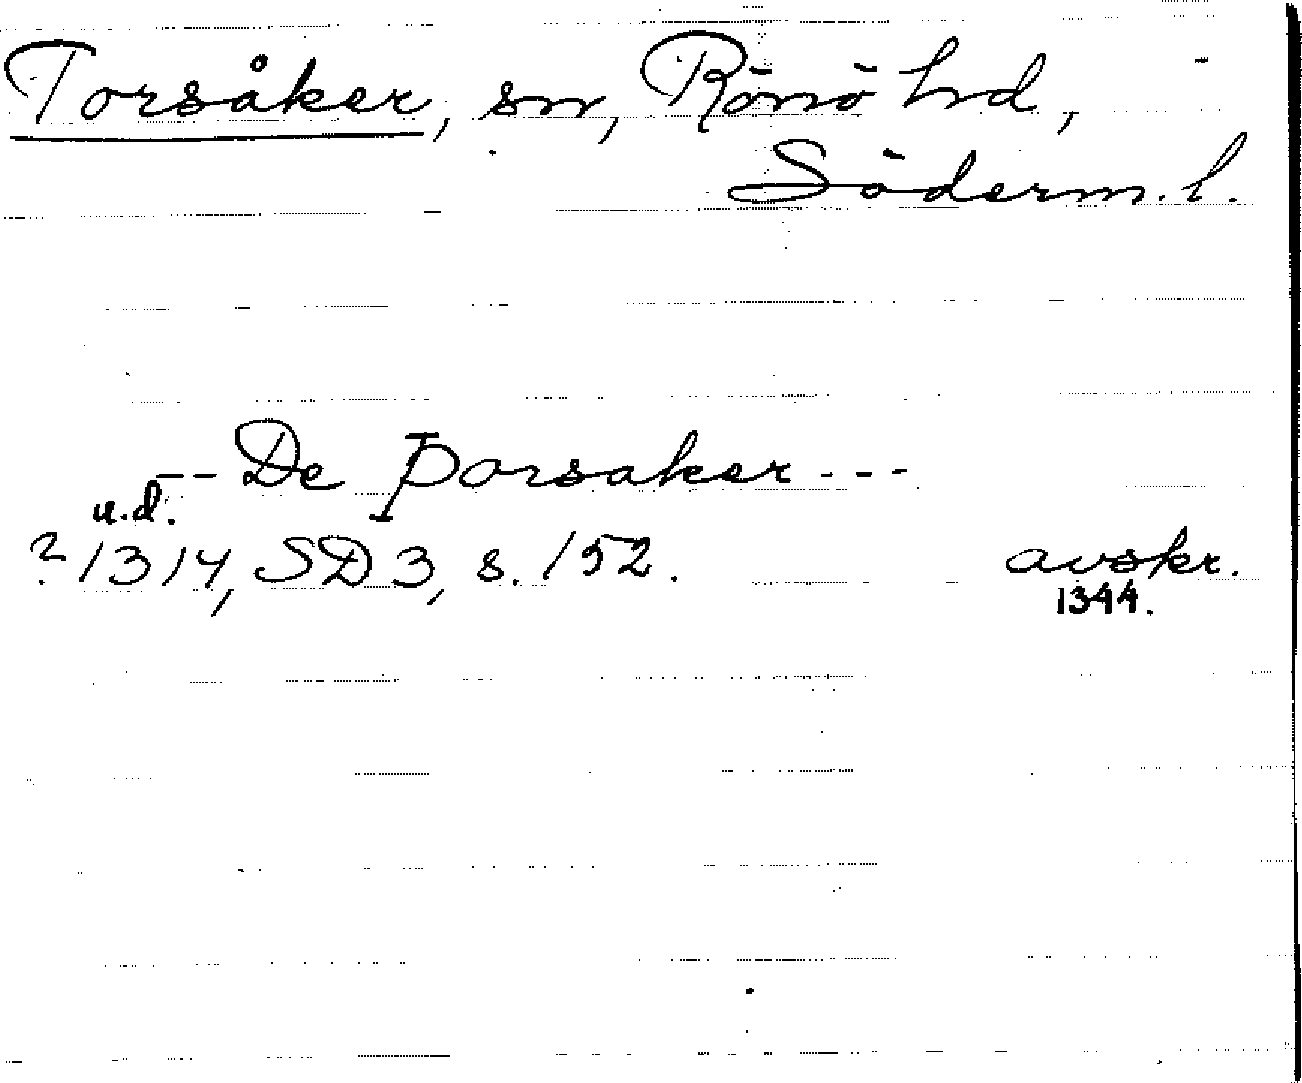 Torsåker, sn, Rönö hd,
Söderm. l.
-- De Þorsaker ---
u.d.
? 1314, SD 3, s. 152. avskr.
1344.